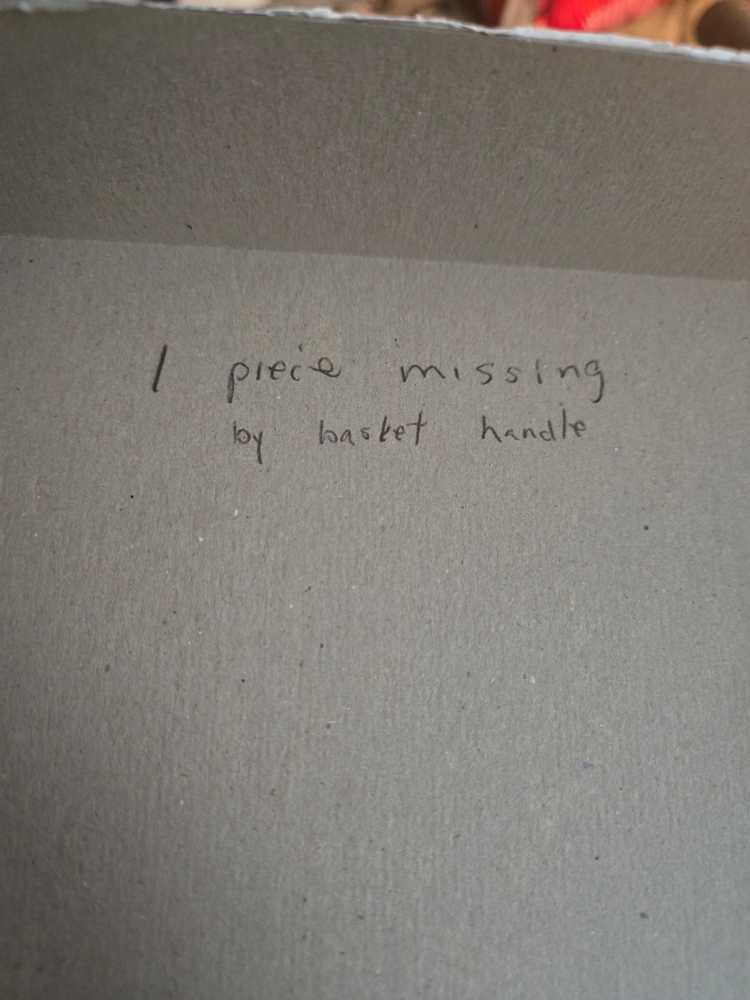 1 piece missing
by basket handle